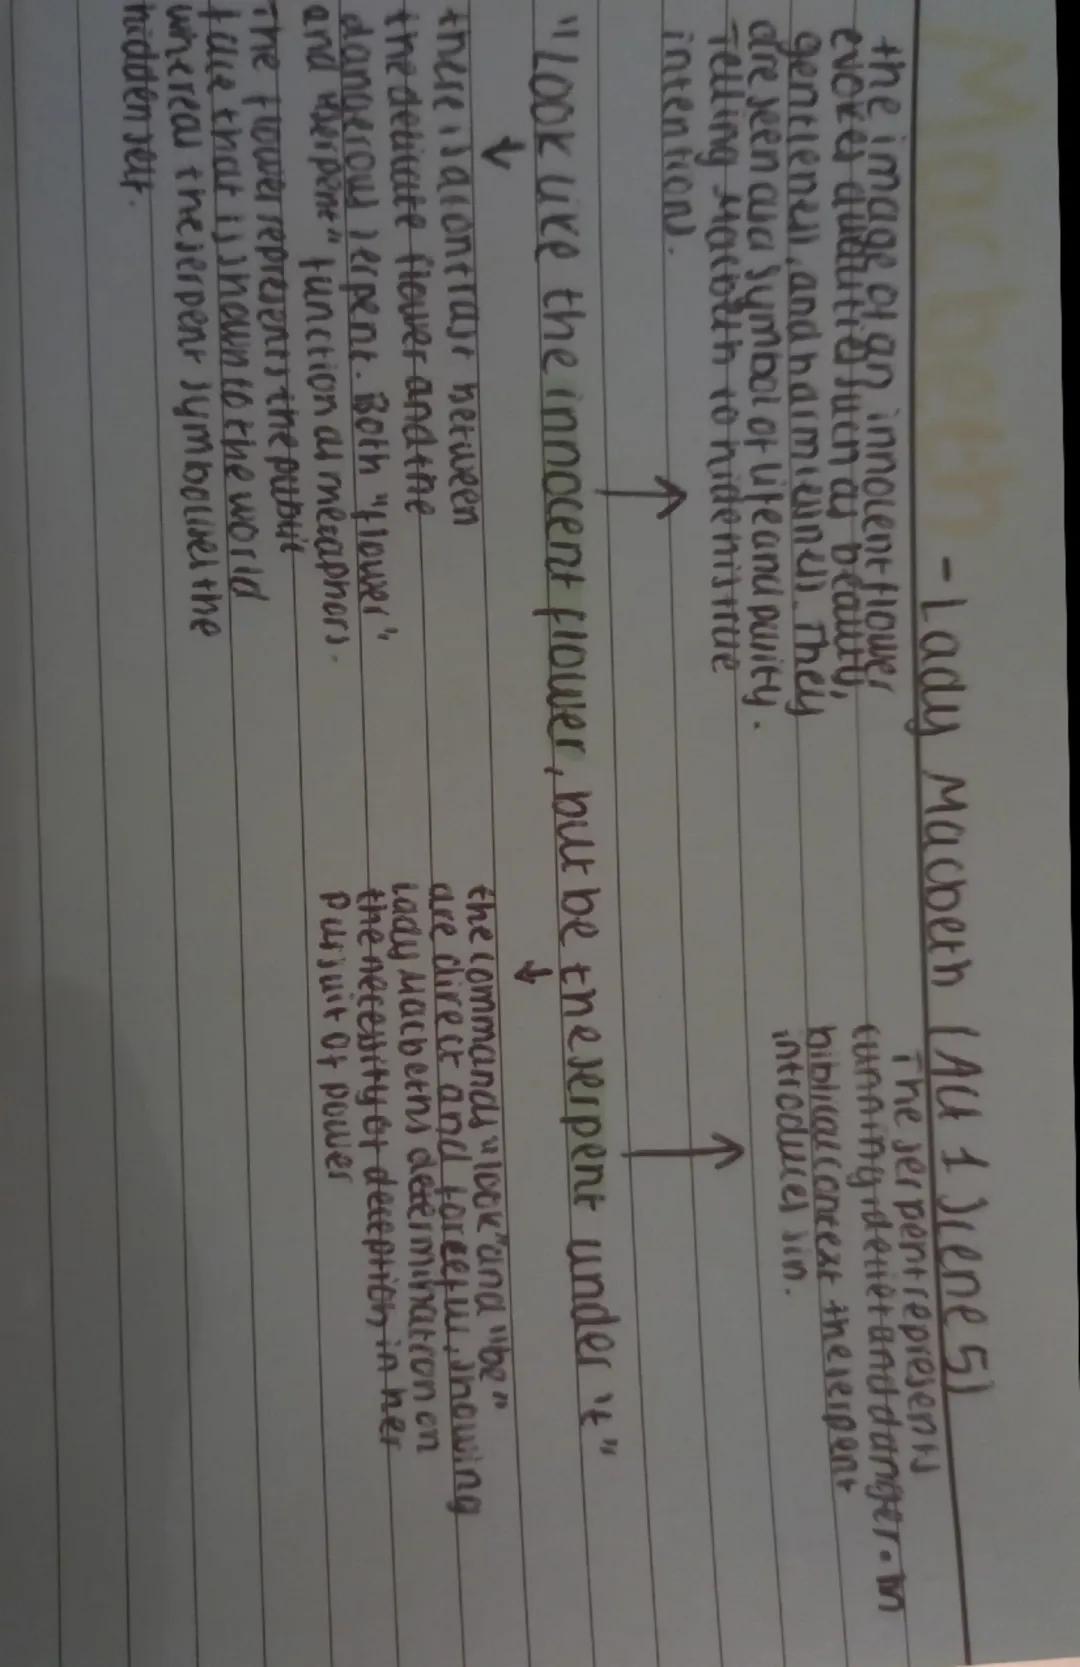 Macbeth - Lady Macbeth (Act 1 Scene 5)
the image of an innocent flower
evokes qualities such as beauty,
gentleness, and harmlessness. They
are seen as a symbol of life and purity.
Telling Macbeth to hide his true
intentions.
The serpent represents
cunning, deceit and danger. In
biblical context the serpent
introduces sin.
"Look like the innocent flower, but be the serpent under 't"
there is a contrast between
the delicate flower and the
dangerous serpent. Both "flower"
and "serpent" function as metaphors.
The flower represents the public
face that is shown to the world
whereas the serpent symbolises the
hidden self.
the commands "look" and "be"
are direct and forceful, showing
Lady Macbeths determination on
the necessity of deception in her
pursuit of power